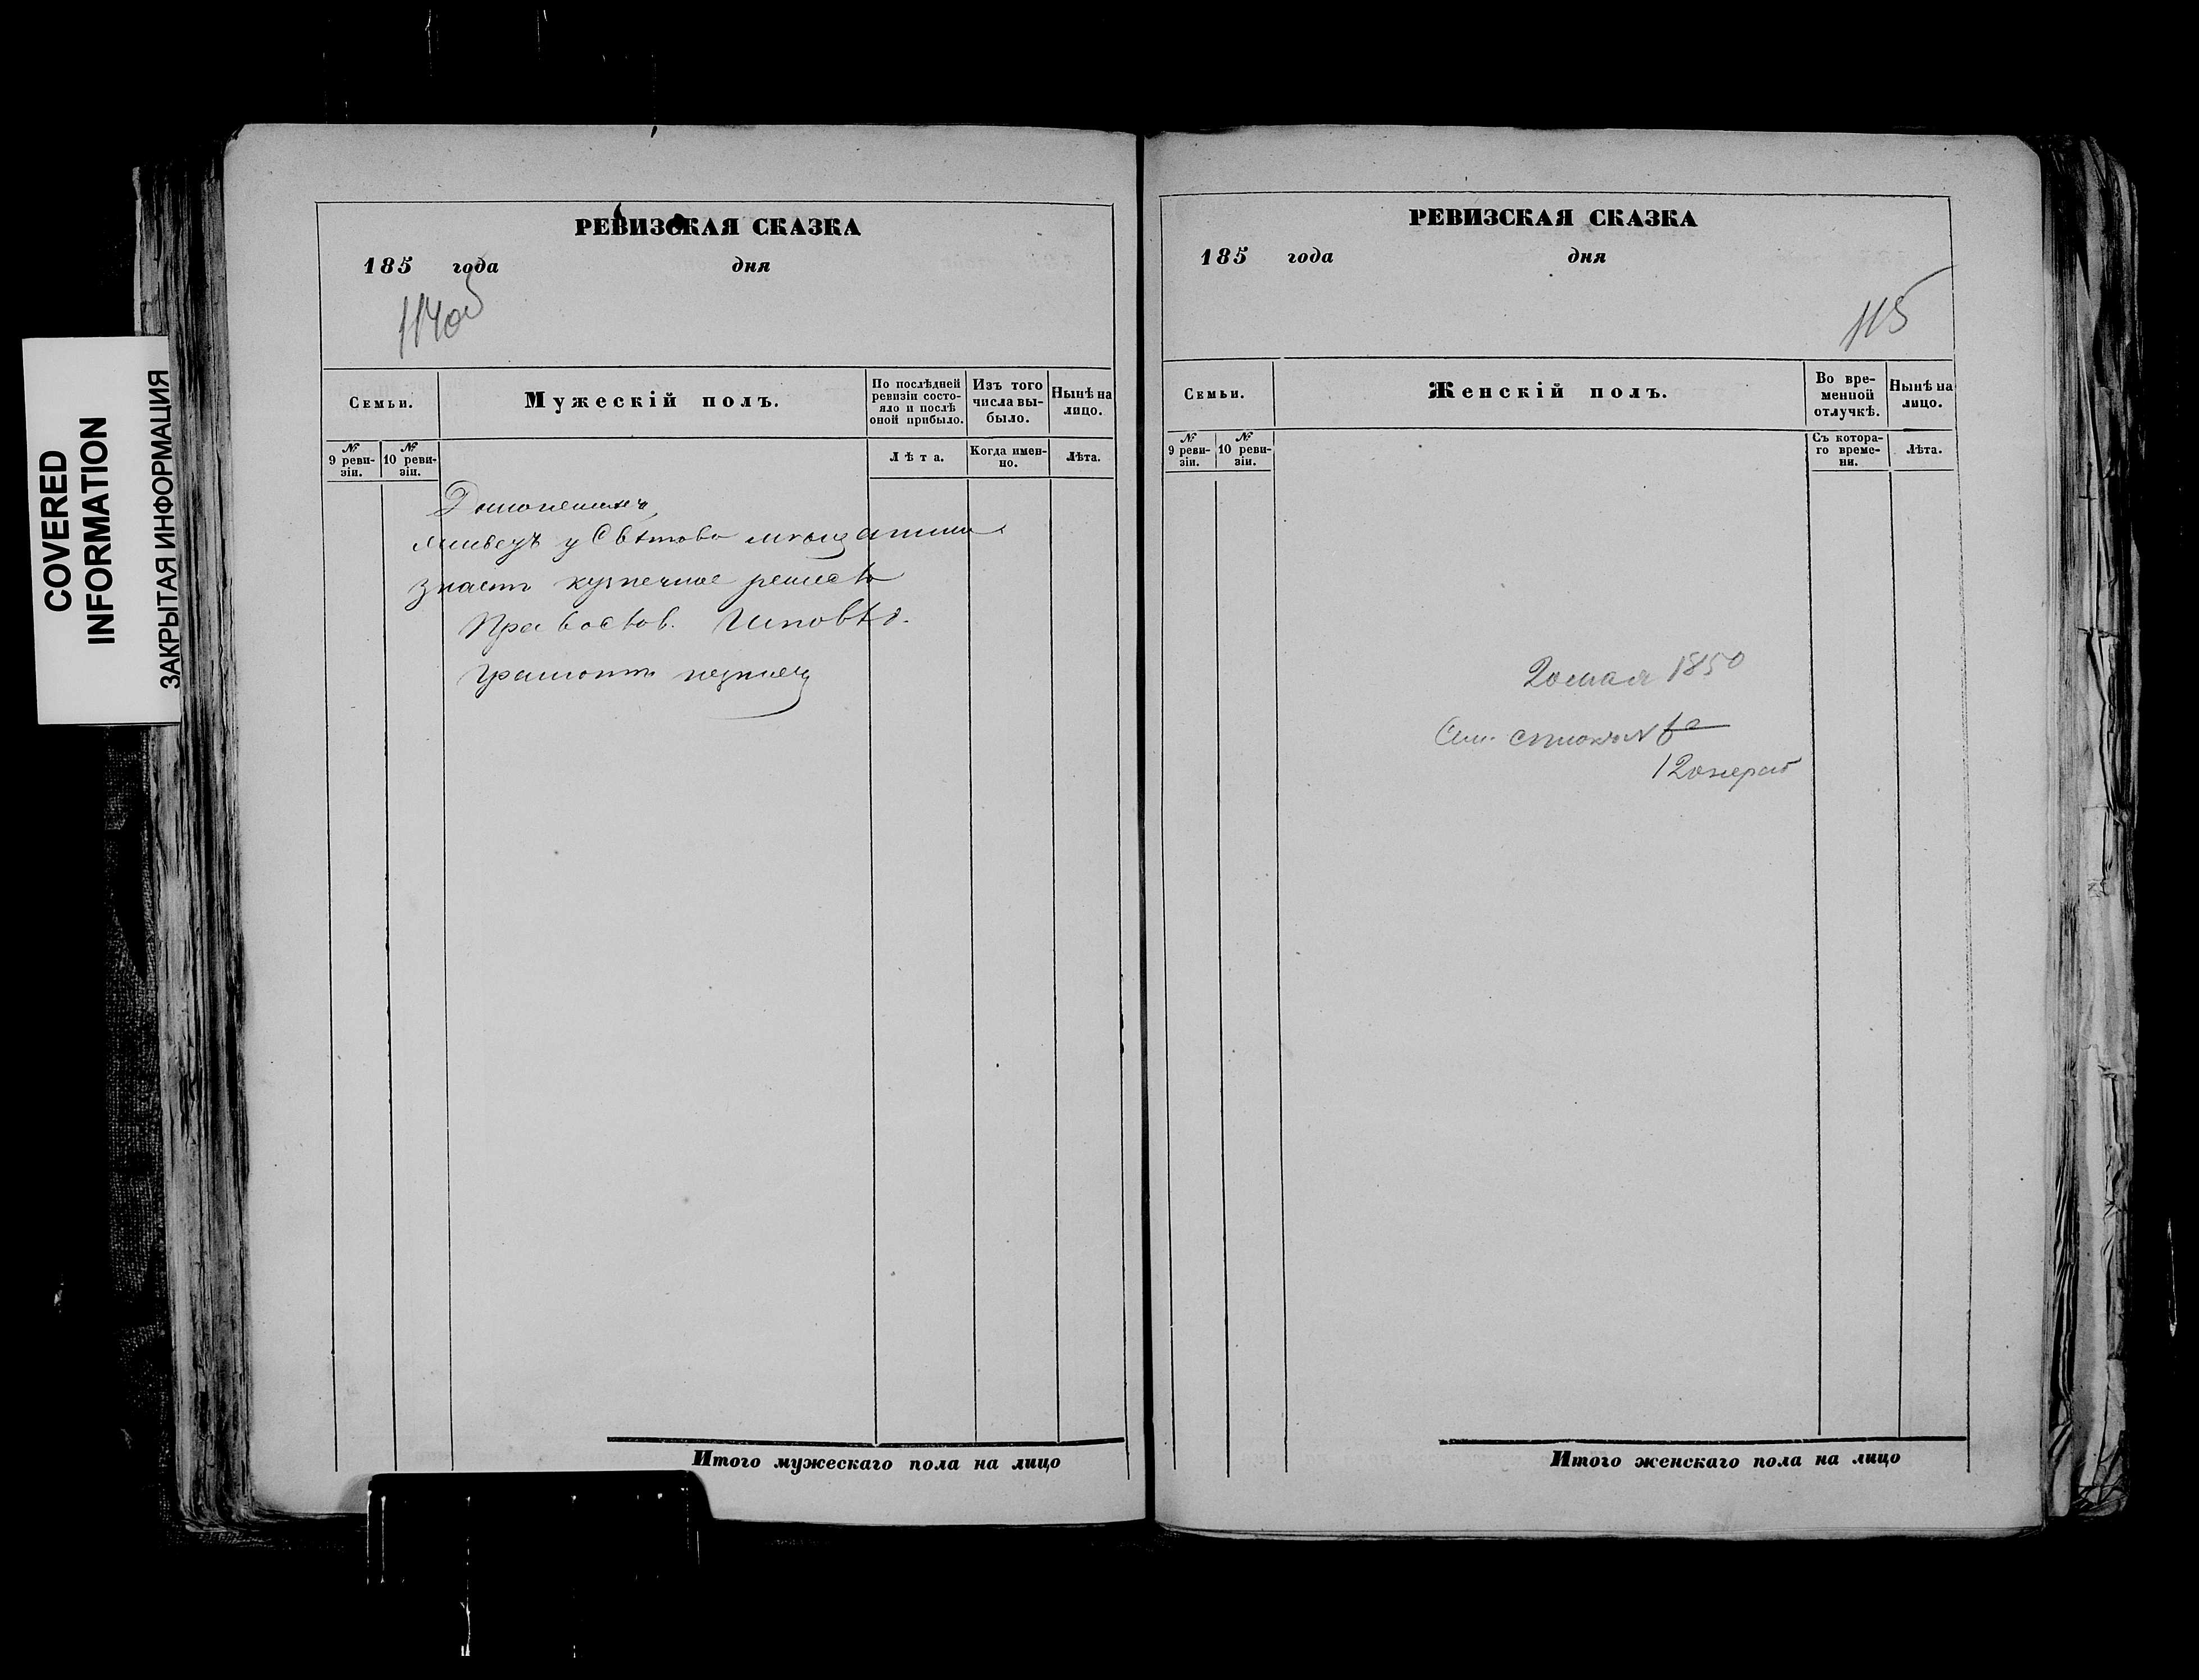 COVERED
INFORMATION
ЗАКРЫТАЯ ИНФОРМАЦИЯ
РЕВИЗСКАЯ СКАЗКА
185 года дня
114об
Семьи.
Мужескій полъ.
По послѣдней ревизіи состояло и послѣ оной прибыло.
Изъ того числа выбыло.
Нынѣ на лицо.
№ 9 ревизіи.
№ 10 ревизіи.
Лѣта.
Когда именно.
Лѣта.
живетъ у
знаетъ кузнечное ремесло
Правослов.
грамоте незнаетъ
Итого мужескаго пола на лицо
РЕВИЗСКАЯ СКАЗКА
185 года дня
115
Семьи.
Женскій полъ.
Во временной отлучкѣ.
Нынѣ на лицо.
№ 9 ревизіи.
№ 10 ревизіи.
Съ котораго времени.
Лѣта.
20 мая 1850
Итого женскаго пола на лицо